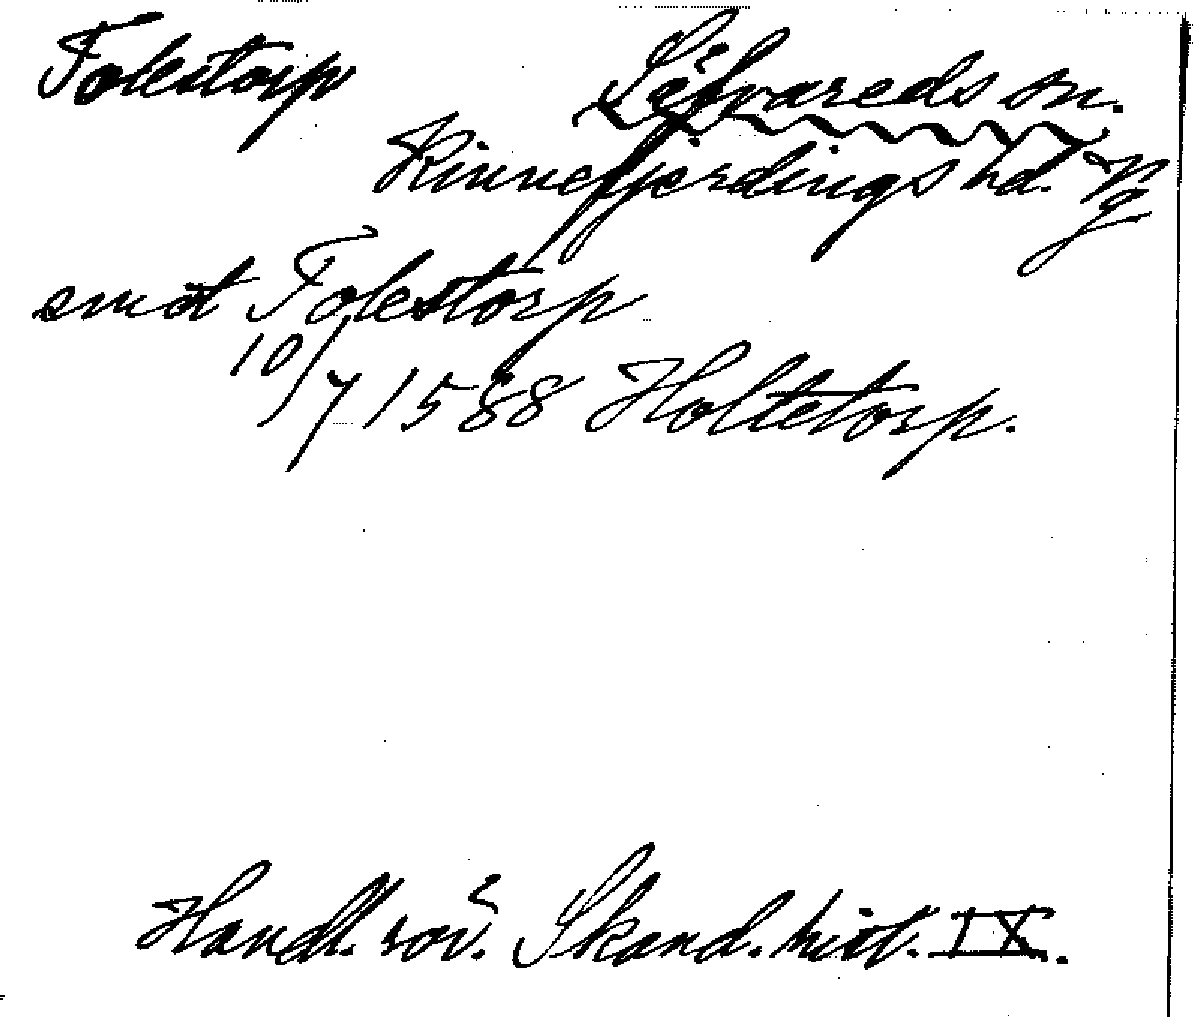 Tolestorp Säfvareds sn.
Kinnefjerdings hd. Vg
emot Tolestorp
10/7 1588 Holtetorp.
Handl. rör. Skand. hist. IX.